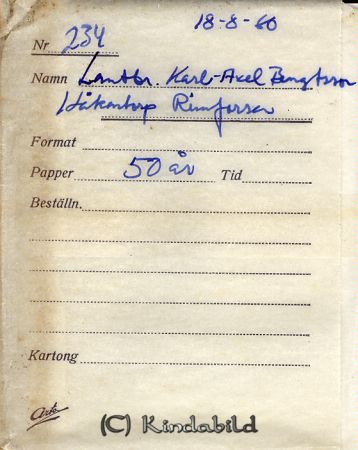 18-8-60
Nr 234
Namn Lantbr. Karl-Axel Bengtsson
Håkantorp Rimforsa
Format
Papper 50 år Tid
Beställn.
Kartong
Ark
(C) Kindabild